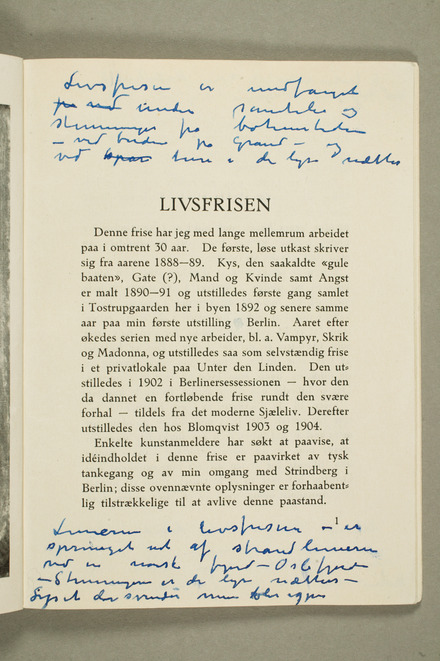 Livsfrisen er undfanget
under samtaler og
stemninger fra bohemtiden
– ved på Grand – og
ved ture i de lyse nætter
LIVSFRISEN
Denne frise har jeg med lange mellemrum arbeidet
paa i omtrent 30 aar. De første, løse utkast skriver
sig fra aarene 1888—89. Kys, den saakaldte «gule
baaten», Gate (?), Mand og Kvinde samt Angst
er malt 1890—91 og utstilledes første gang samlet
i Tostrupgaarden her i byen 1892 og senere samme
aar paa min første utstilling Berlin. Aaret efter
økedes serien med nye arbeider, bl. a. Vampyr, Skrik
og Madonna, og utstilledes saa som selvstændig frise
i et privatlokale paa Unter den Linden. Den ut-
stilledes i 1902 i Berlinersessessionen — hvor den
da dannet en fortløbende frise rundt den svære
forhal — tildels fra det moderne Sjæleliv. Derefter
utstilledes den hos Blomqvist 1903 og 1904.
Enkelte kunstanmeldere har søkt at paavise, at
idéindholdet i denne frise er paavirket av tysk
tankegang og av min omgang med Strindberg i
Berlin; disse ovennævnte oplysninger er forhaabent-
lig tilstrækkelige til at avlive denne paastand.
1
Linierne i Livsfrisen – er
sprunget ut af strandlinierne
ved en norsk fjord – Oslofjord
– Stemningen er de lyse nætters –
Lyset der